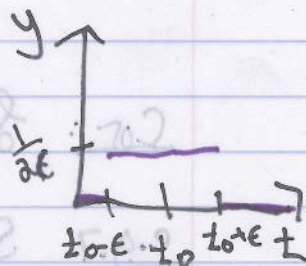 y
1/2ϵ
t₀-ϵ t₀ t₀+ϵ t